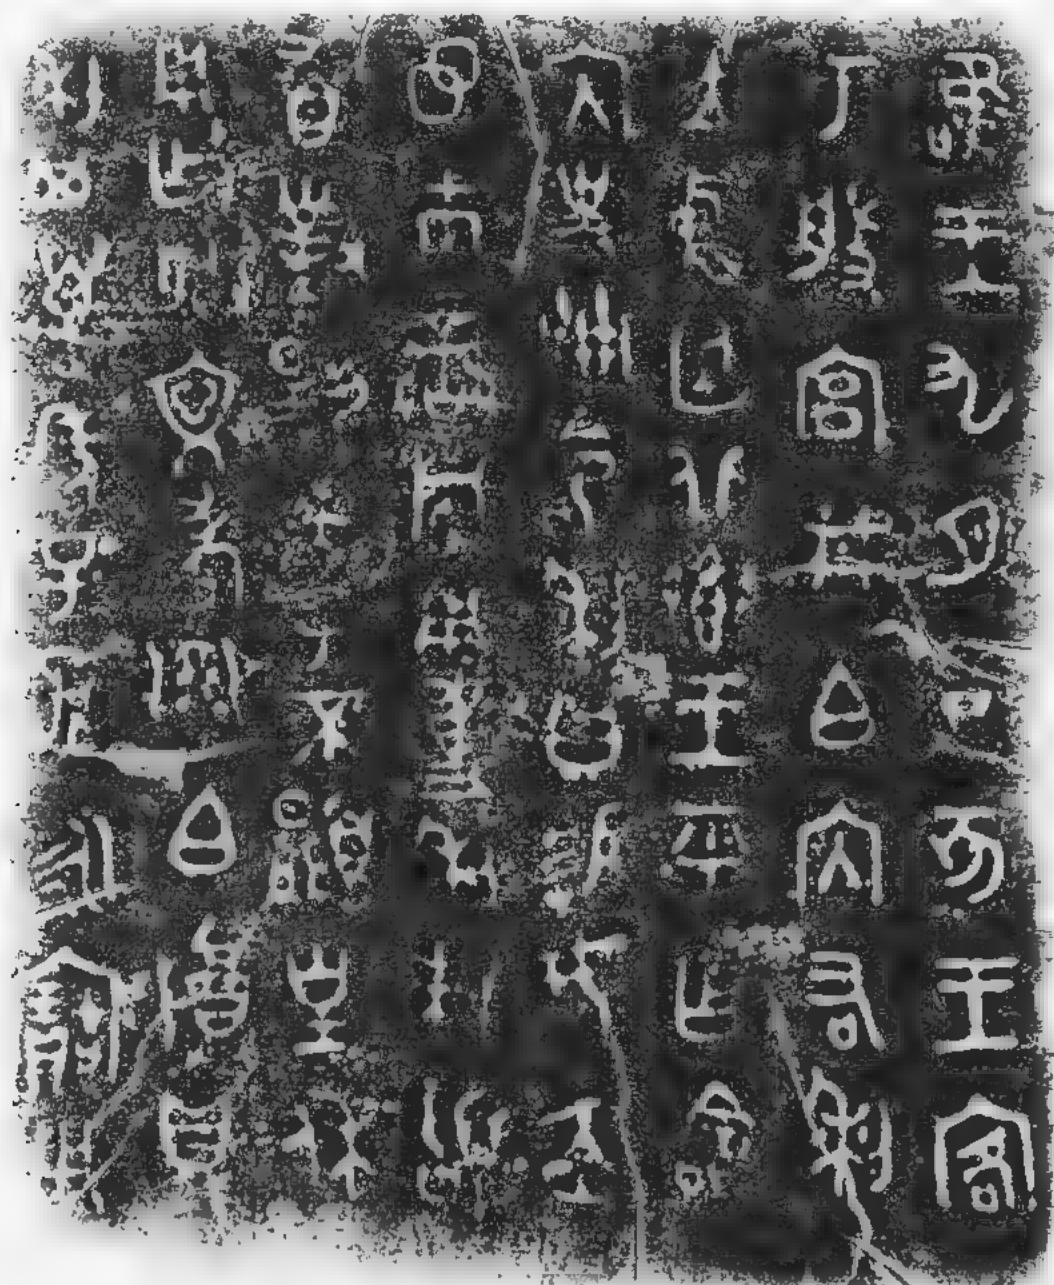 唯王九月丁亥王客
于般宮井白內右利
立中廷北鄉王乎乍命
內史冊命利曰易女赤
巿鑾旂用事利拜
𩒨首對揚天子不顯皇休
用乍朕文考白尊鼎
利其萬年子孫永寶用